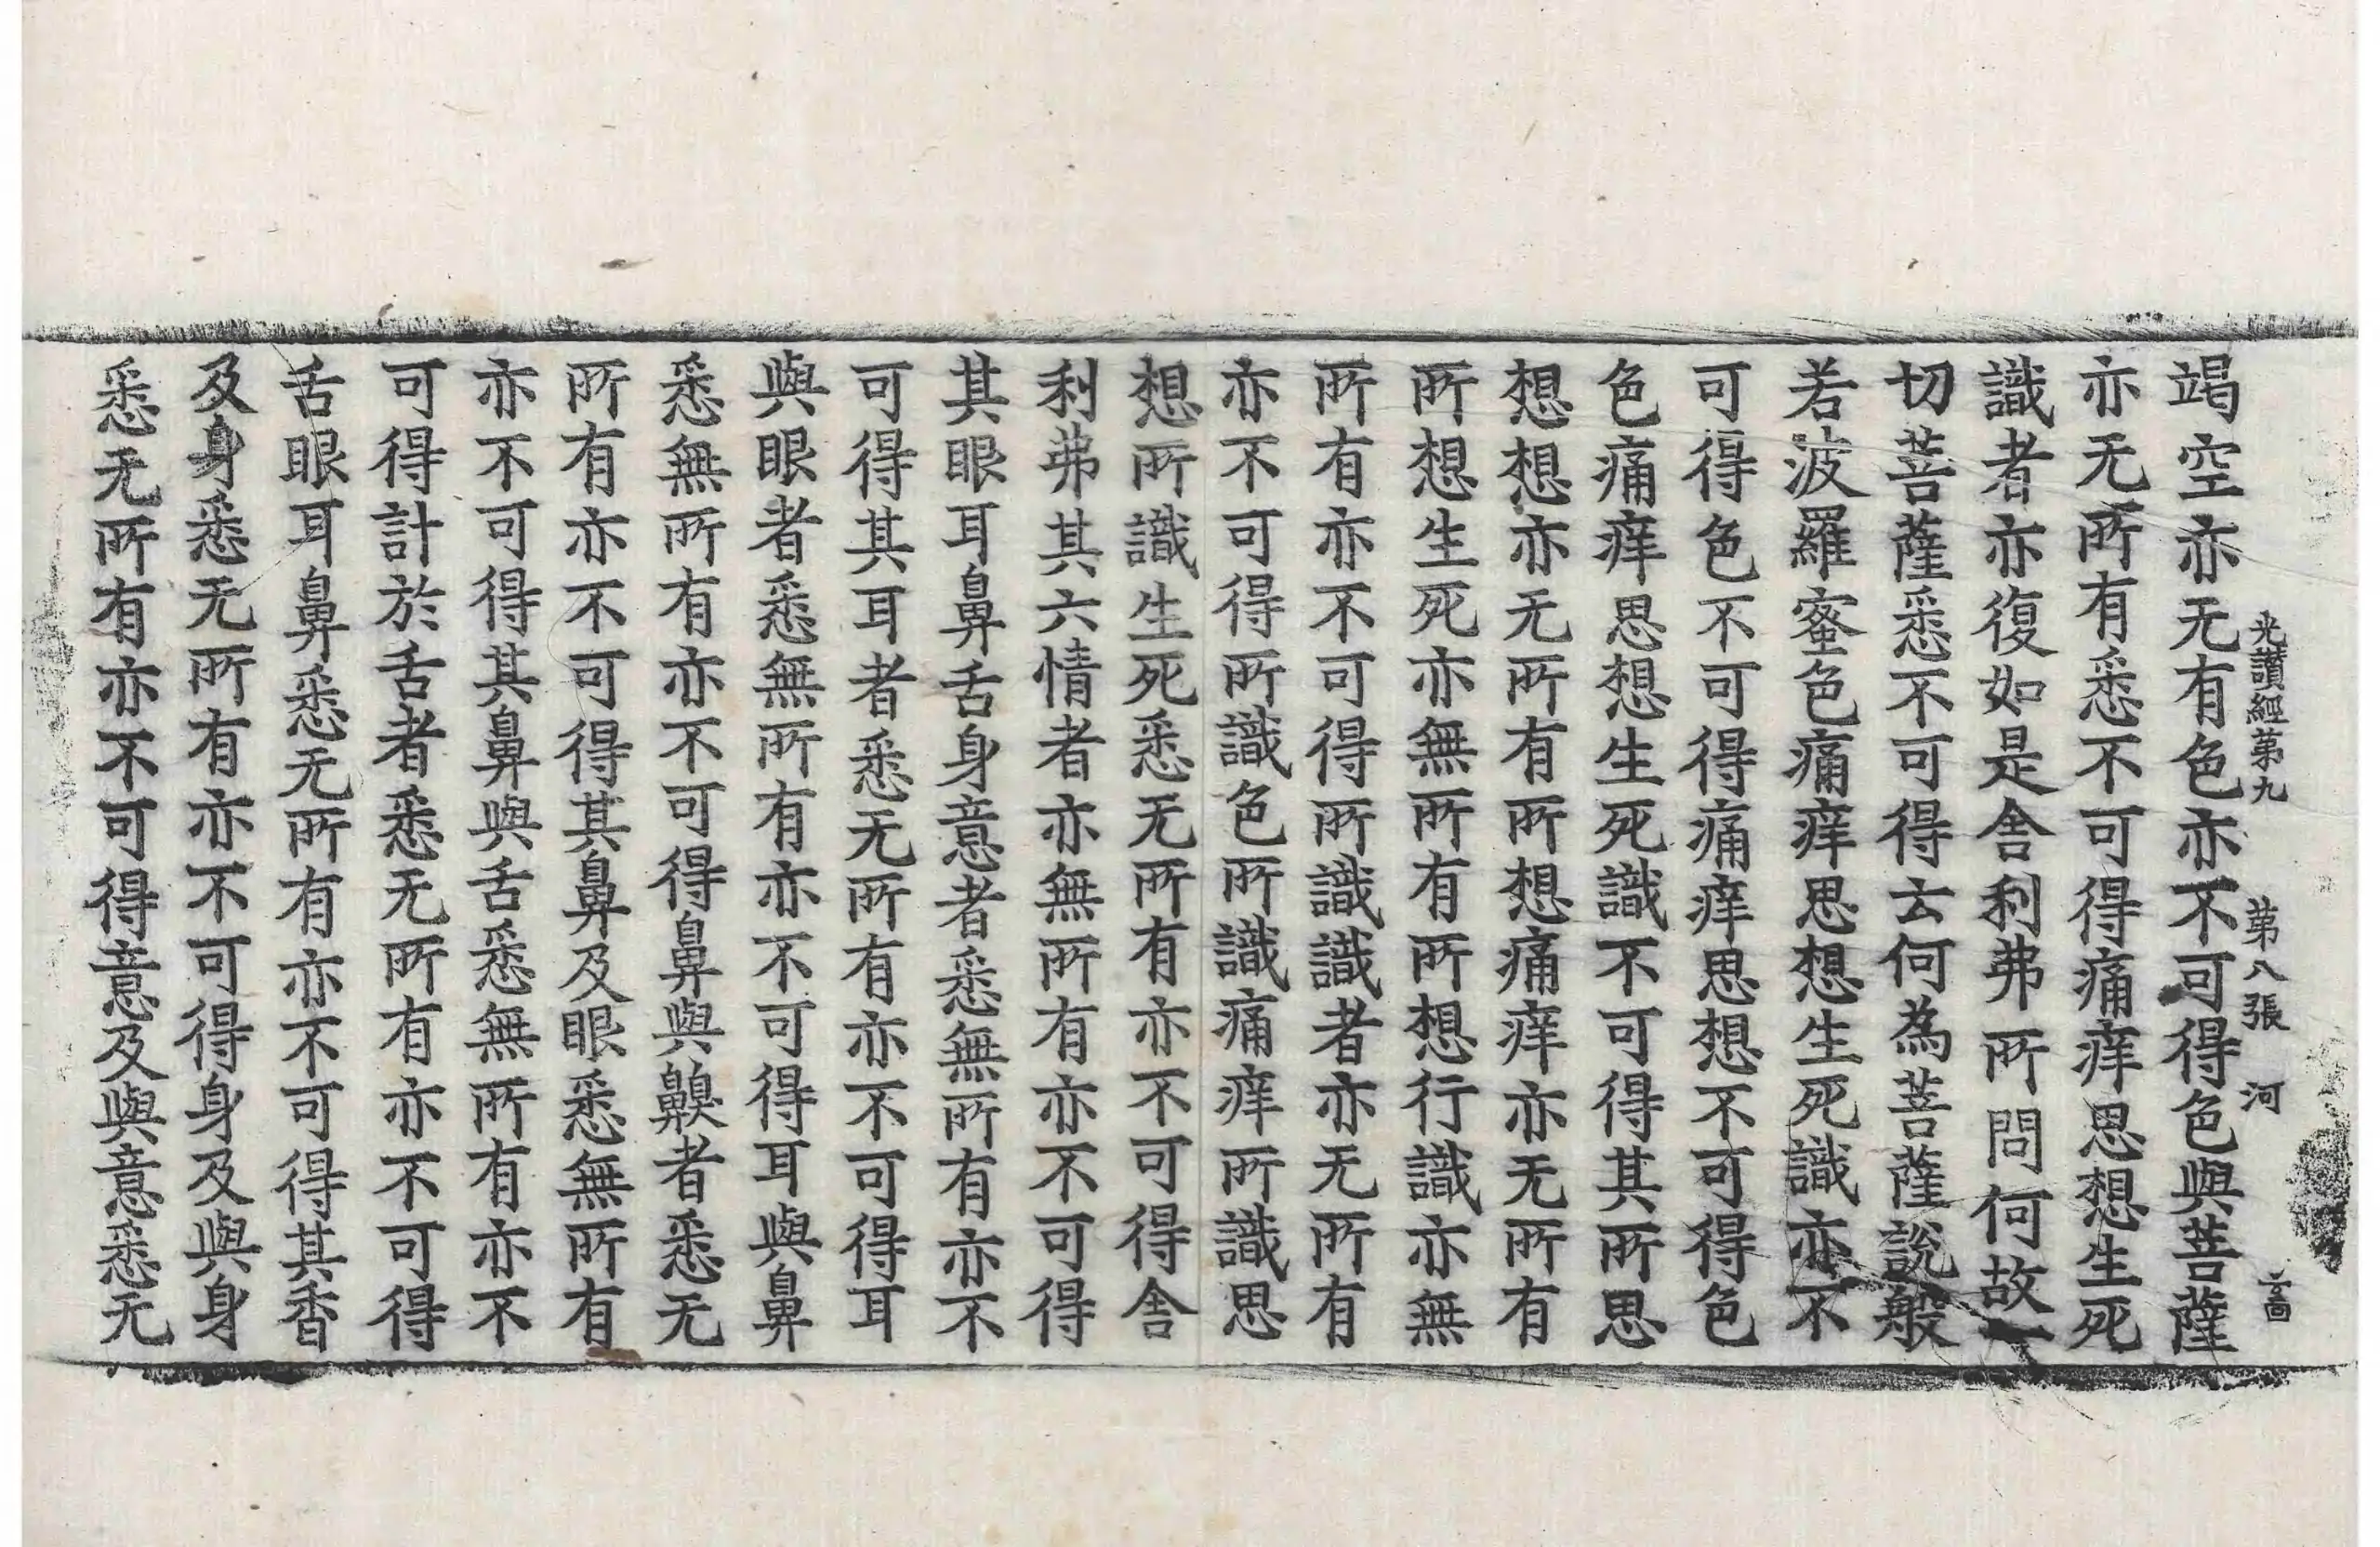 光讚經第九　第八張　河
竭空亦无有色亦不可得色與菩薩
亦无所有悉不可得痛痒思想生死
識者亦復如是舍利弗所問何故一
切菩薩悉不可得云何為菩薩說般
若波羅蜜色痛痒思想生死識亦不
可得色不可得痛痒思想不可得色
色痛痒思想生死識不可得其所思
想想亦无所有所想痛痒亦无所有
所想生死亦無所有所想行識亦無
所有亦不可得所識識者亦无所有
亦不可得所識色所識痛痒所識思
想所識生死悉无所有亦不可得舍
利弗其六情者亦無所有亦不可得
其眼耳鼻舌身意者悉無所有亦不
可得其耳者悉无所有亦不可得耳
與眼者悉無所有亦不可得耳與鼻
悉無所有亦不可得鼻與齅者悉无
所有亦不可得其鼻及眼悉無所有
亦不可得其鼻與舌悉無所有亦不
可得計於舌者悉无所有亦不可得
舌眼耳鼻悉无所有亦不可得其香
及身悉无所有亦不可得身及與身
悉无所有亦不可得意及與意悉无